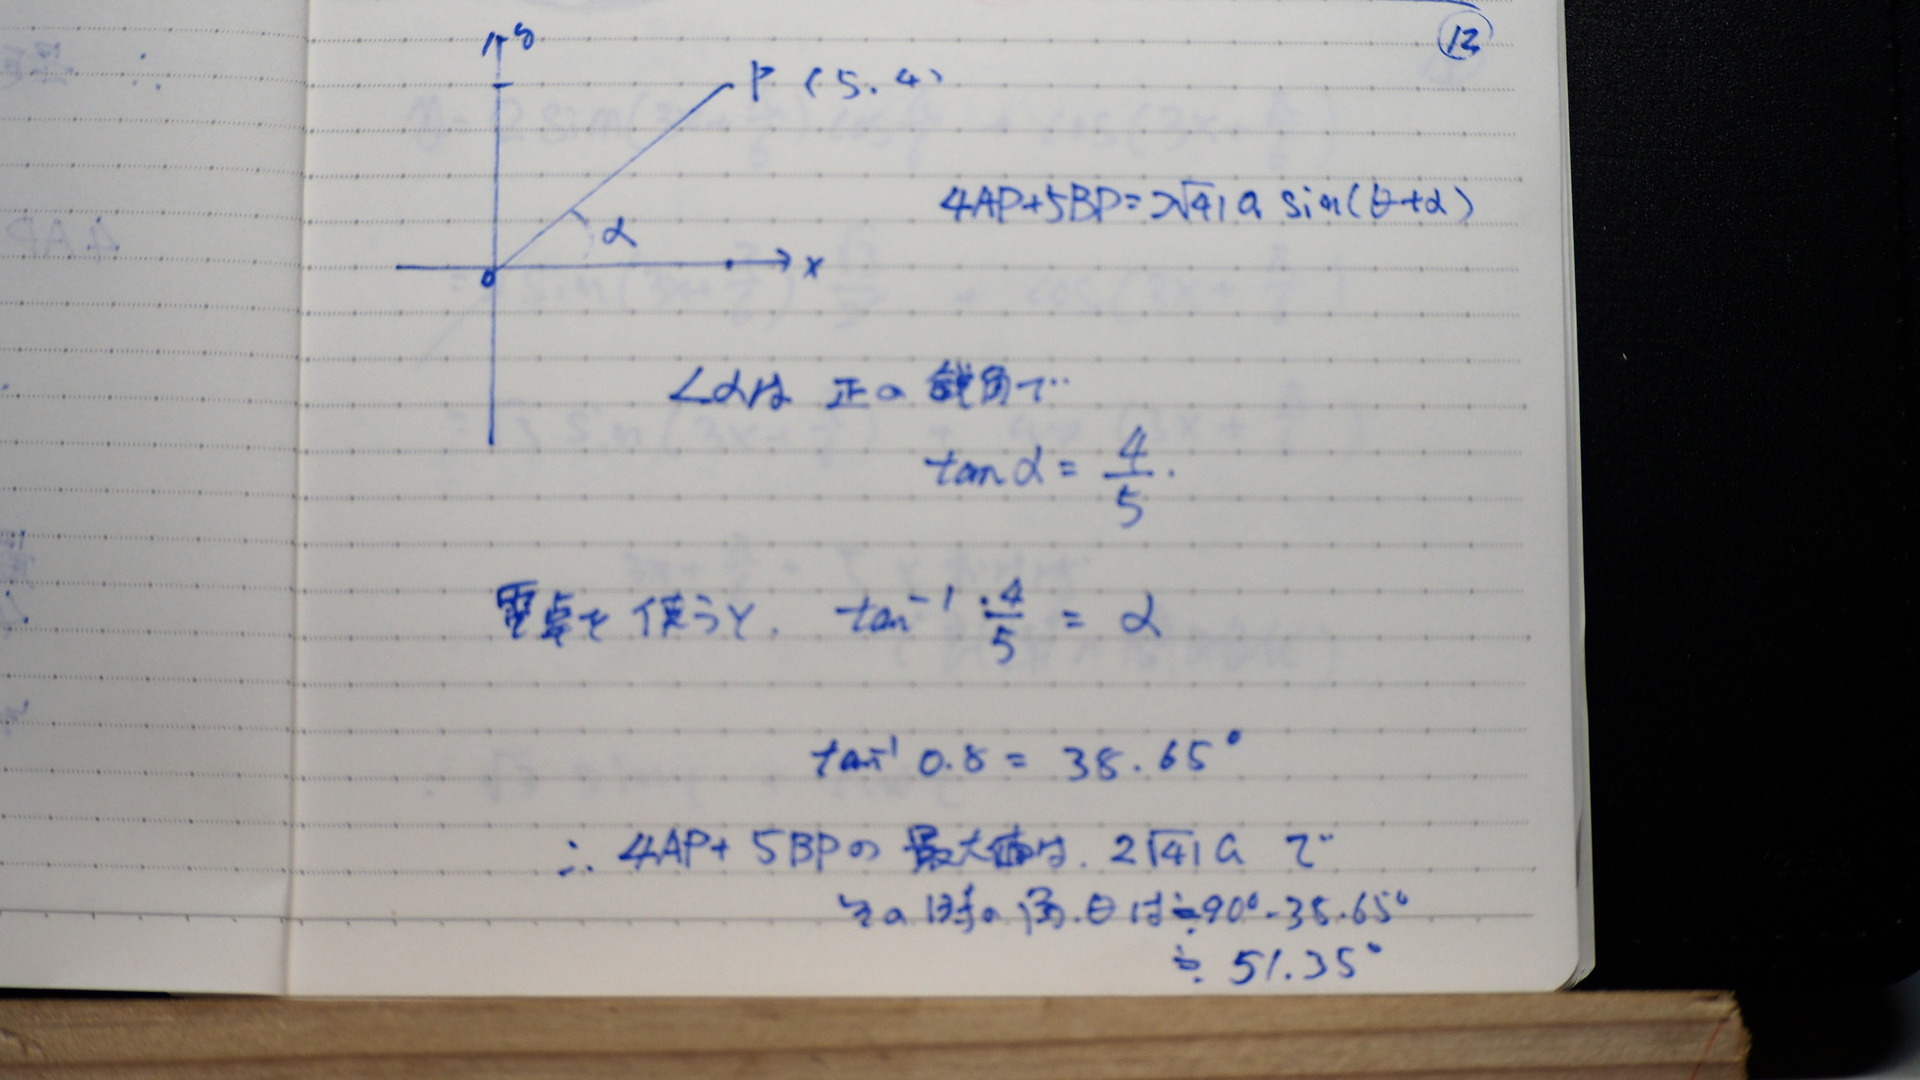 12
y
P (5. 4)
4AP+5BP=2√41 a sin(θ+α)
α
x
0
∠αは 正の 鋭角で
tan α = 4/5.
電卓を使うと, tan⁻¹ 4/5 = α
tan⁻¹ 0.8 = 38.65°
∴ 4AP+ 5BPの 最大値は. 2√41 a で
その時の 角.θは≒90°-38.65°
≒ 51.35°